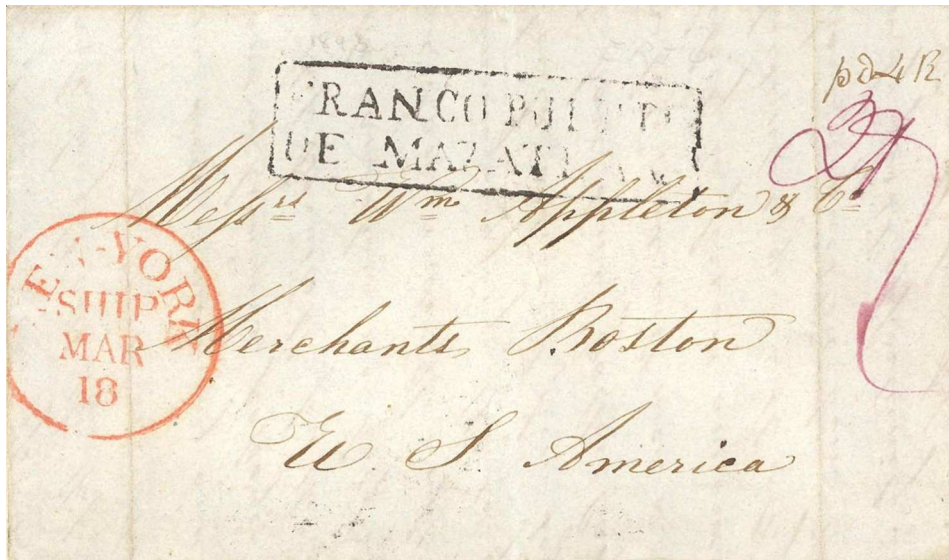 pd 4 R
FRANCO PUERTO
DE MAZATLAN
Messrs Wm Appleton & Co
NEW-YORK
SHIP
MAR
18
Merchants Boston
U S America